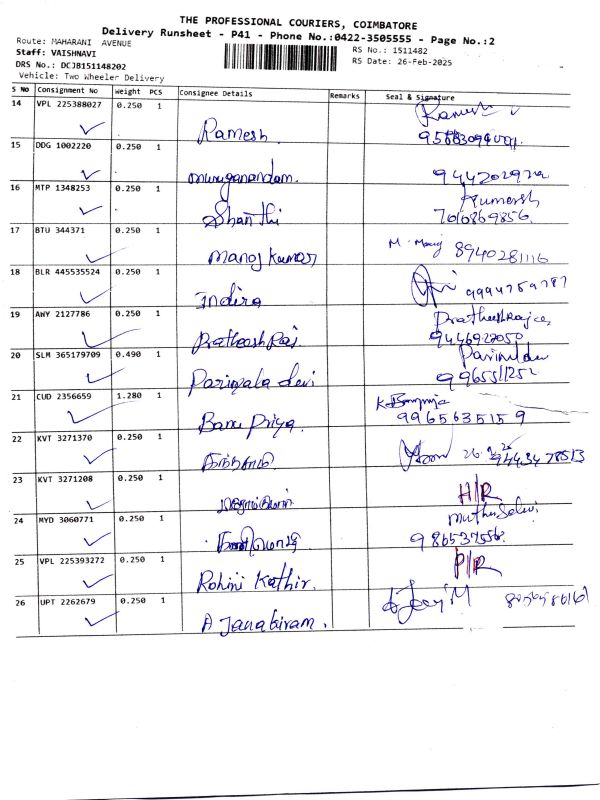 THE PROFESSIONAL COURIERS, COIMBATORE
Delivery Runsheet - P41 - Phone No.:0422-3505555 - Page No.:2
Route: MAHARANI AVENUE
RS No.: 1511482
Staff: VAISHNAVI
RS Date: 26-Feb-2025
DRS No.: DCJB151148202
Vehicle: Two Wheeler Delivery
S NO Consignment No Weight PCS Consignee Details Remarks Seal & Signature
14 VPL 225388027 0.250 1 Ramesh Ramesh
15 DDG 1002220 0.250 1 Muruganandam
16 MTP 1348253 0.250 1 Shanthi 7010869856
17 BTU 344371 0.250 1 Manoj Kumar 8940281116
18 BLR 445535524 0.250 1 Indira 9994759787
19 AWY 2127786 0.250 1 Pratheesh Raj 9446927050
20 SLM 365179709 0.490 1 Parimala devi
21 CUD 2356659 1.280 1 Banu Priya 9965635159
22 KVT 3271370 0.250 1
23 KVT 3271208 0.250 1 H/R
24 MYD 3060771 0.250 1 Muthu Selvi
25 VPL 225393272 0.250 1 Rohini Kathir. P/R
26 UPT 2262679 0.250 1 A Janakiram.